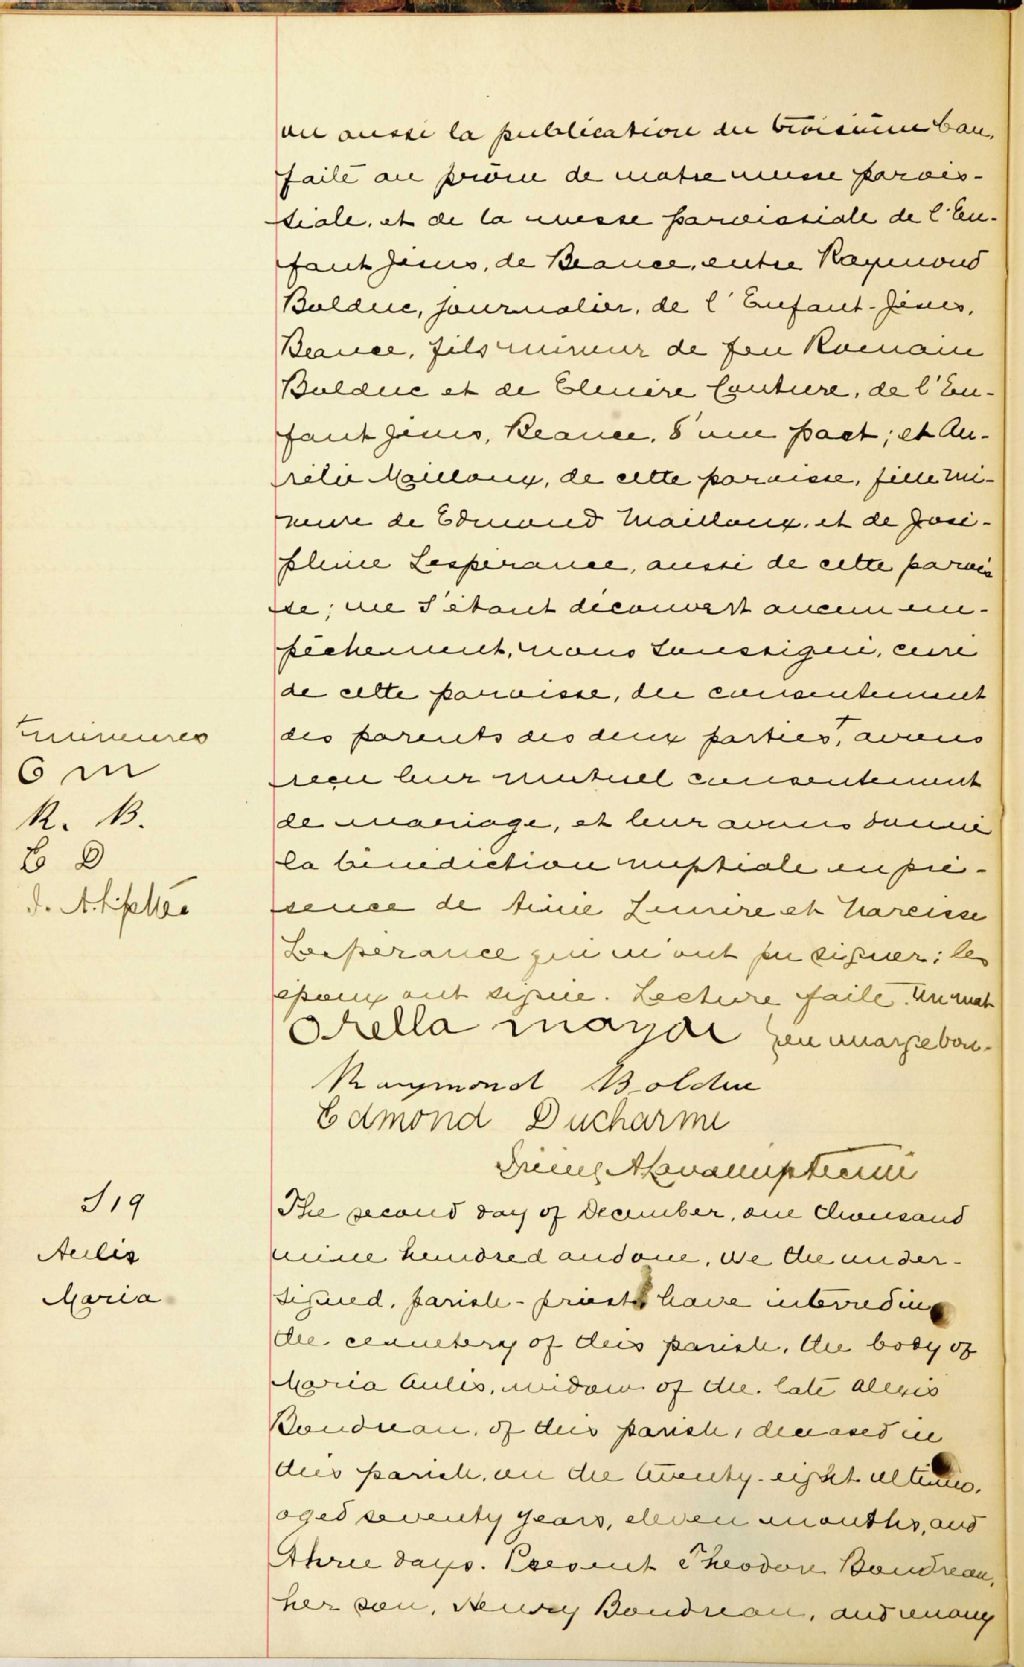 vu aussi la publication du troisième ban,
faite au prône de notre messe parois-
siale, et de la messe paroissiale de l'En-
fant Jésus, de Beauce, entre Raymond
Bolduc, journalier, de l'Enfant-Jésus,
Beauce, fils mineur de feu Romain
Bolduc et de Elmire Couture, de l'En-
fant Jésus, Beauce, d'une part; et Au-
rélie Mailloux, de cette paroisse, fille mi-
neure de Edmond Mailloux, et de José-
phine Lespérance, aussi de cette parois
se; ne s'étant découvert aucun em-
pêchement, nous soussigné, curé
de cette paroisse, du consentement
+mineures
des parents des deux parties+, avons
O m
reçu leur mutuel consentement
R. B.
de mariage, et leur avons donné
E D
la bénédiction nuptiale en pré-
sence de Aimé Lemire et Narcisse
Lespérance qui n'ont pu signer; les
époux ont signé. Lecture faite. Un mot
Orella mayou
en marge bon.
Raymond Bolduc
Edmond Ducharme
S 19
The second day of December, one thousand
Aulis
nine hundred and one, we the under-
Maria
signed, parish-priest, have interred in
the cemetery of this parish, the body of
Maria Aulis, widow of the late Alexis
Boudreau, of this parish, deceased in
this parish, on the twenty-eight ultimo,
aged seventy years, eleven months, and
three days. Present Theodore Boudreau,
her son, Henry Boudreau, and many